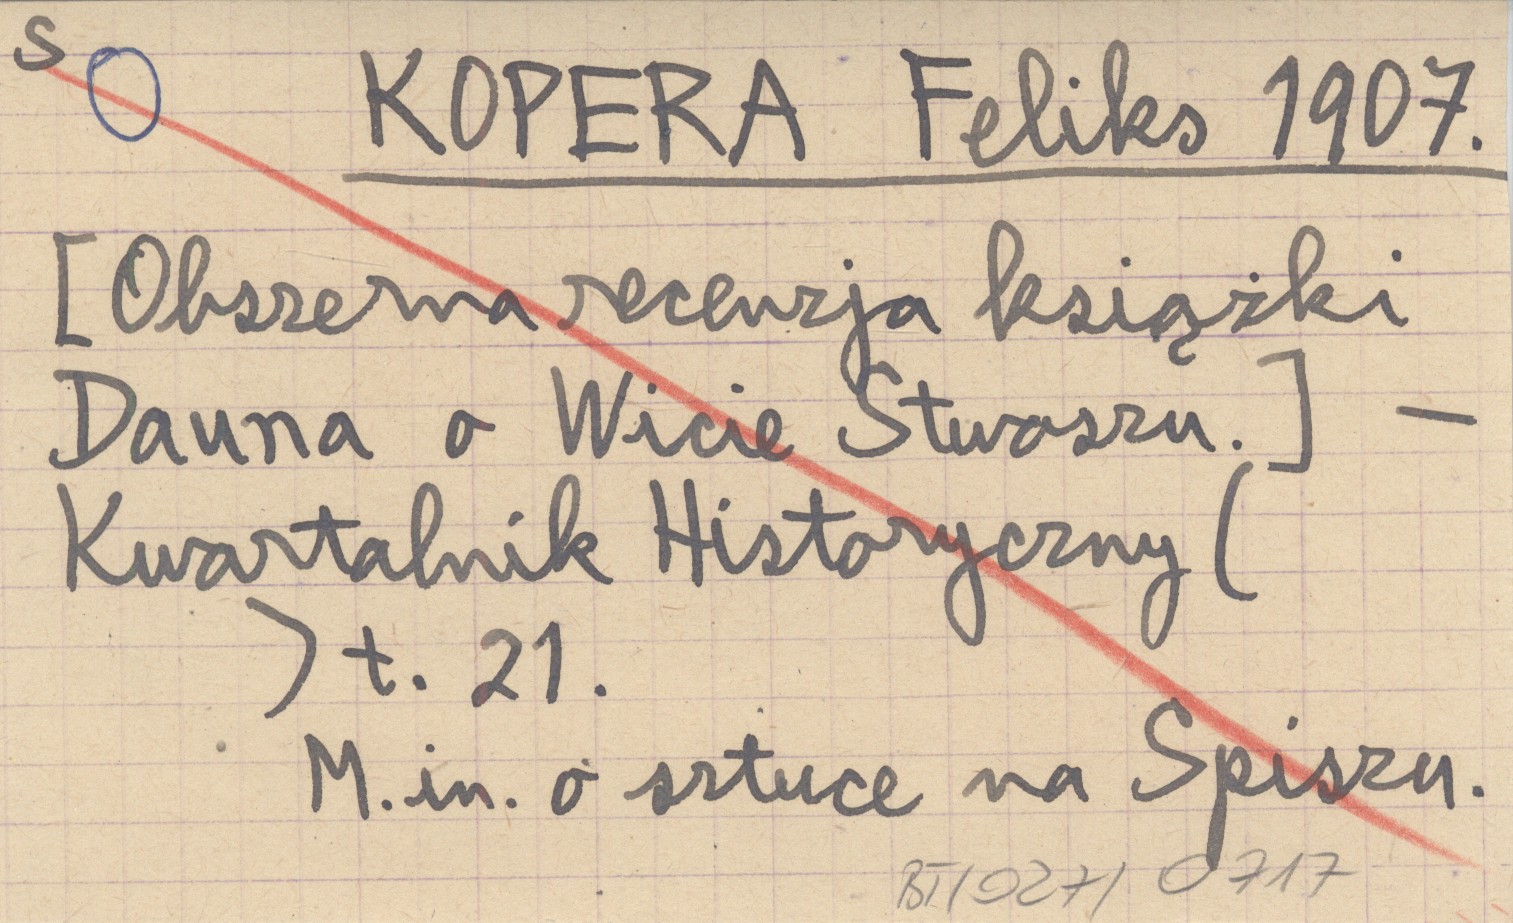 S
KOPERA Feliks 1907.
[Obszerna recenzja książki
Dauna o Wicie Stwoszu.] —
Kwartalnik Historyczny (
) t. 21.
M.in. o sztuce na Spiszu.
0717